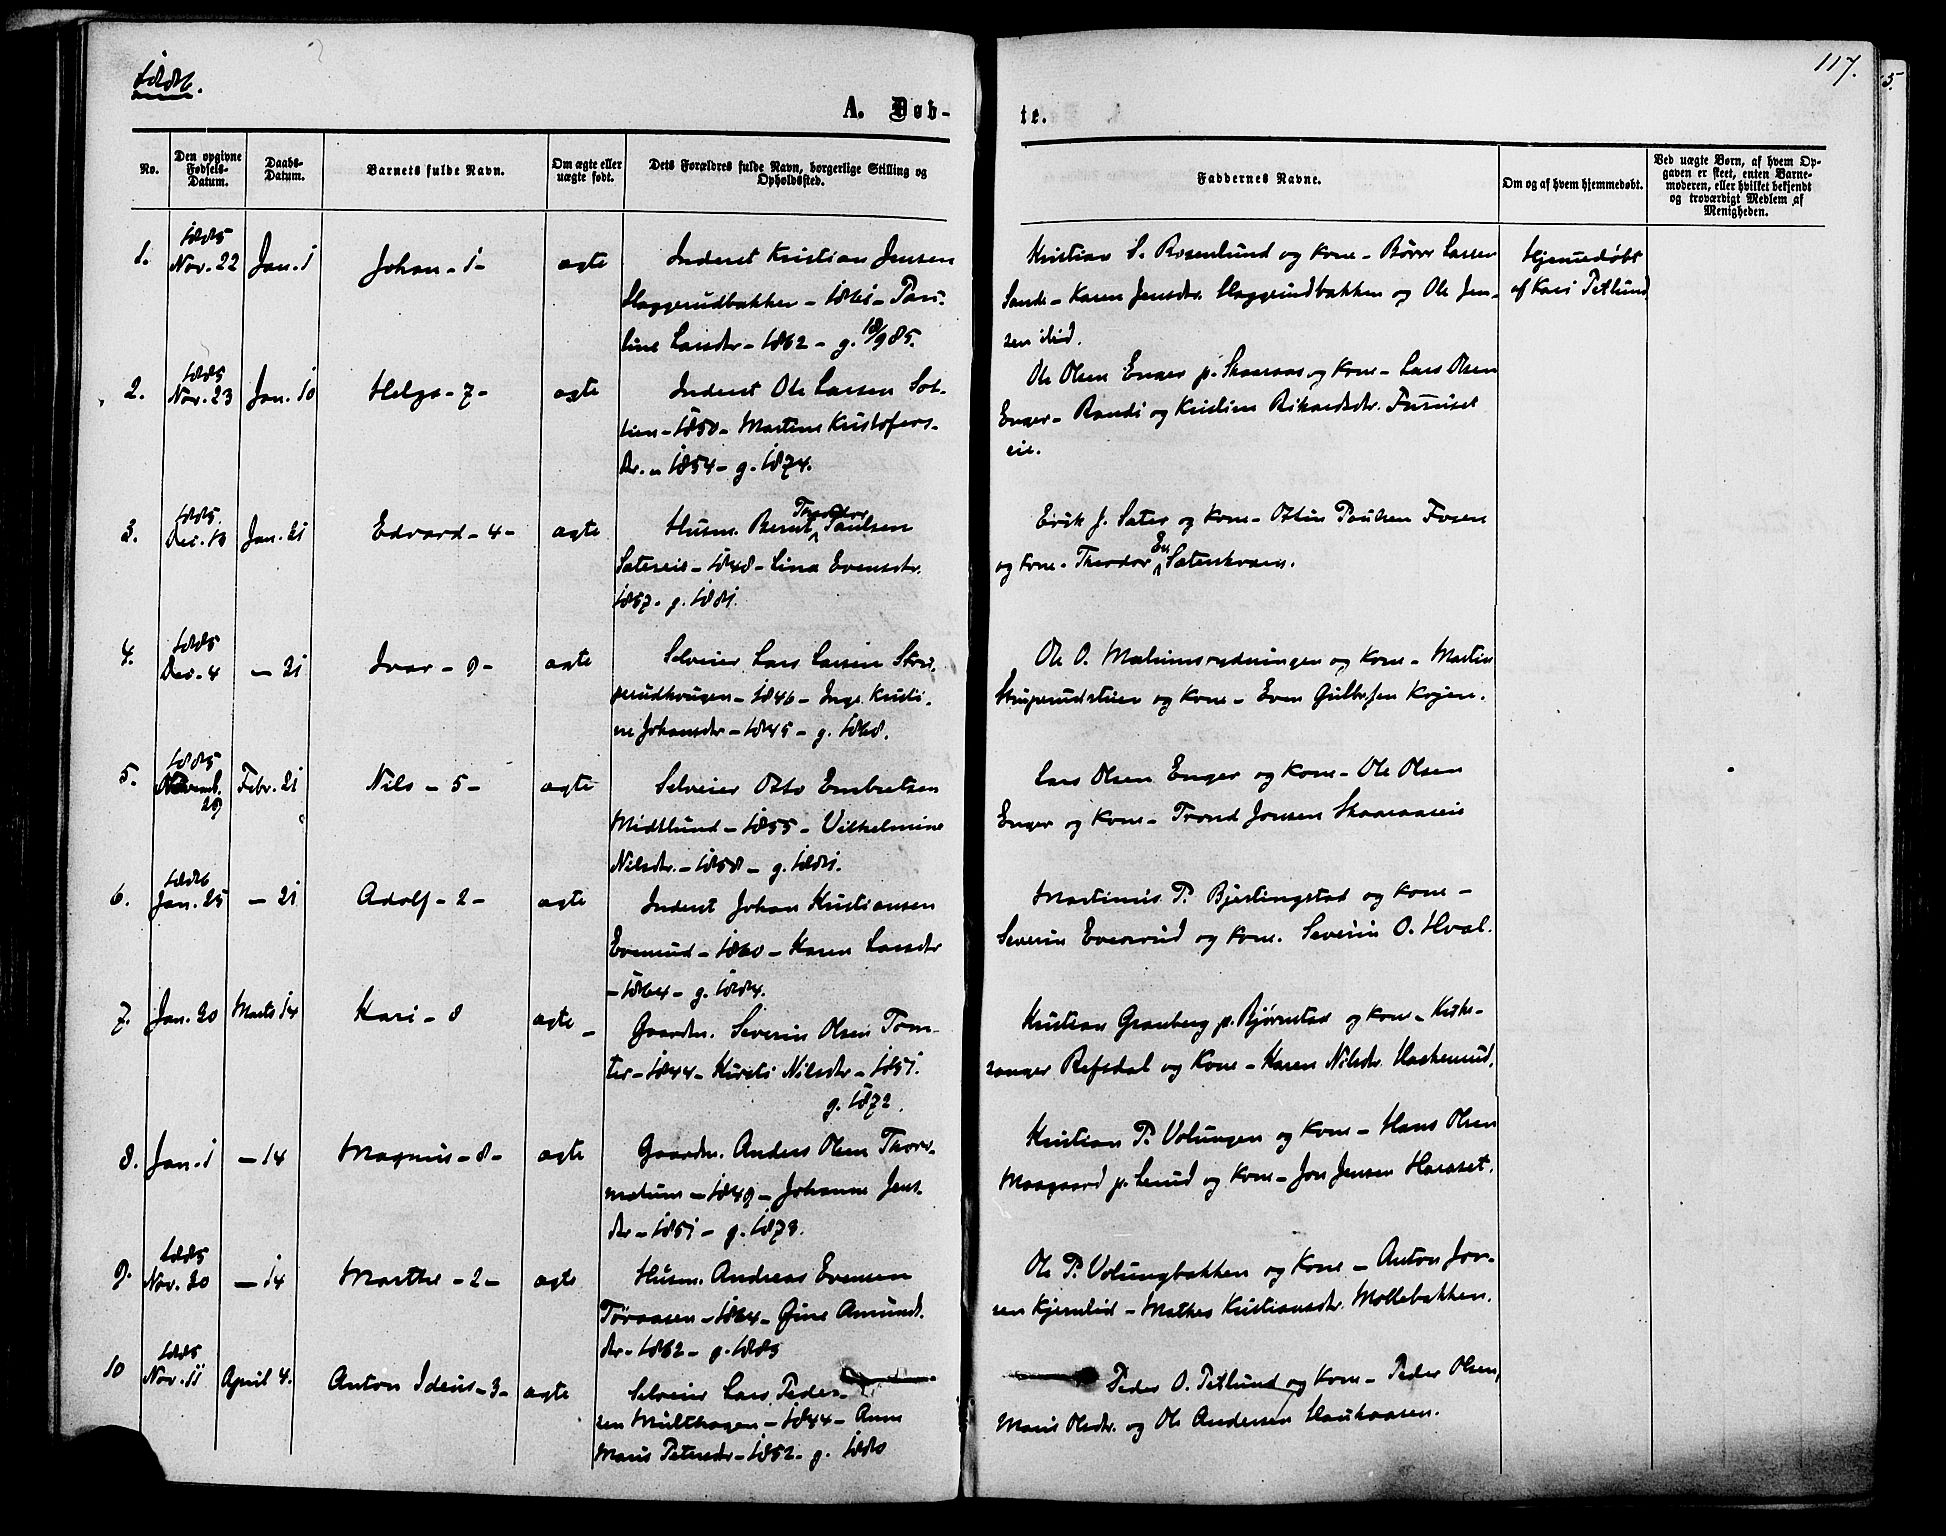 1886.
117.
A. Døb-
te.
No.
Den opgivne Fødsels-Datum.
Daabs-Datum.
Barnets fulde Navn.
Om ægte eller uægte født.
Dets Forældres fulde Navn, borgerlige Stilling og Opholdssted.
Faddernes Navne.
Om og af hvem hjemmedøbt.
Ved uægte Børn, af hvem Opgaven er skeet, enten Barnemoderen, eller hvilket bekjendt og troværdigt Medlem af Menigheden.
1. 1885 Nov. 22 Jan. 1 Johan - 1 - ægte Inderst Kristian Jensen
Haggerudbakken - 1861 - Pau-
line Larsdtr - 1862 - g. 18/9 85.
Kristian S. Rosenlund og kone - Børre Larsen
Sande - Karen Jensdtr. Haggerudbakken og Ole Jen-
sen ibid.
Hjemmedøbt
af Kari Petlund
2. 1885 Nov. 23 Jan. 10 Helga - 7 - ægte Inderst Ole Larsen
1850 - Martine Kristofers-
dtr. - 1854 - g. 1874.
Ole Olsen Enger p. Skaaraas og kone - Lars Olsen
Enger - Randi og Kristine Rikardsdtr. Furuset
eie.
3. 1885 Dec. 13 Jan. 21 Edvard - 4 - ægte Husm. Bernt Theodor Paulsen
Sætereie - 1848 - Lina Evensdtr.
1857. g. 1881.
Eirik J. Sæter og kone - Paulsen Fosen
og kone - Theodor Sæterskvæn.
4. 1885 Dec. 4 - 21 Ivar - 9 - ægte Selveier Lars Larsen Stru-
perudhougen - 1846 - Inge Kristi-
ne Johansdtr - 1845 - g. 1868.
Ole O. Mælumsrydningen og kone - Martin
Struperudstuen og kone - Even Gulbrsen Kojen.
5. 1885 Novemb. 29 Febr. 21 Nils - 5 - ægte Selveier Otto Embretsen
Midtlund - 1855 - Vilhelmine
Nilsdtr. - 1858 - g. 1881.
Lars Olsen Enger og kone - Ole Olsen
Enger og kone - Trond Jonsen Skaaraaseie
6. 1886 Jan. 25 - 21 Adolf - 2 - ægte Inderst Johan Kristiansen
Evenrud - 1860 - Karen Larsdtr
- 1864 - g. 1884.
Martinius P. Bjertingstad og kone -
Severin Evensrud og kone. Severin O. Hval.
7. Jan. 20 Marts 14 Kari - 8 ægte - Gaardm. Severin Olsen Tom-
ter - 1844 - Kirsti Nilsdtr - 1851.
g. 1872.
Kristian Granberg p. Bjørnstad og kone - Kirke-
sanger Refsdal og kone - Karen Nilsdtr. Haskerud.
8. Jan. 1 - 14 Magnus - 8 - ægte Gaardm. Anders Olsen Thors-
mælum - 1849 - Johanne Jens-
dtr - 1851 - g. 1873.
Kristian P. Volungen og kone - Hans Olsen
Maagaard p. Lerud og kone - Jon Jensen Haraset.
9. 1885 Nov. 20 - 14 Marthe - 2 - ægte Husm. Andreas Evensen
Tøraasen - 1864 - Gine Amunds-
dtr - 1862 - g. 1885
Ole P. Volungbakken og kone - Anton Jon-
sen Kjernlid - Mathea Kristiansdtr. Mollebakken.
10 1885 Nov. 11 April 4. Anton Idéus - 3 - ægte Selveier Lars Peder-
sen Multhagen - 1844 - Anne
Marie Petersdtr - 1852 - g. 1880
Peder O. Petlund og kone - Peder Olsen,
Maris Olsdtr. og Ole Andersen Haukaasen.